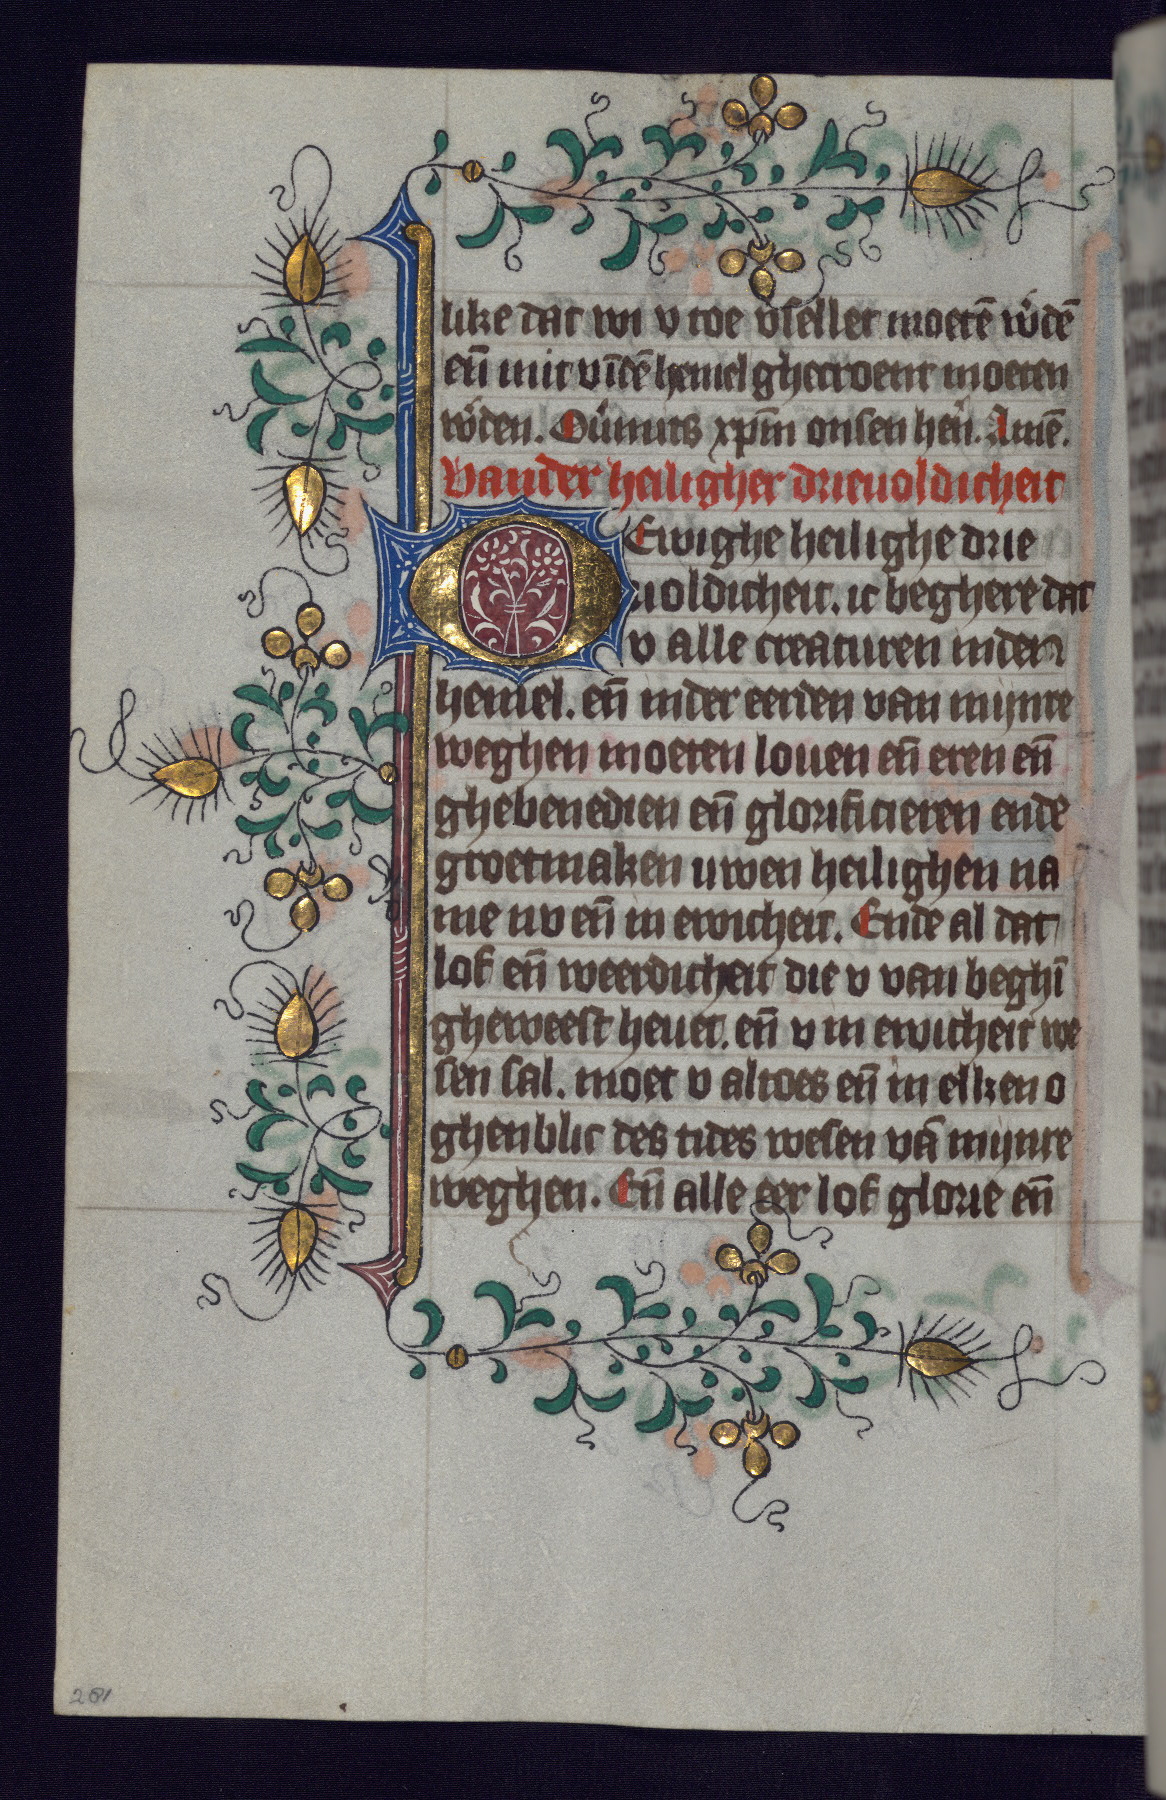 like dat wi v toe v̓sellet moetē w̓dē
eñ mit vr̄dē hemel ghetroent moeten
w̓den. Ou̓mits xp̄m onsen heñ. Amē.
Vander heiligher drieuoldicheit
O Ewighe heilighe drie
uoldicheit. ic beghere dat
v alle creaturen inden
hemel. eñ inder eerden van mijnre
weghen moeten louen eñ eren eñ
ghebenedien eñ glorificieren ende
groetmaken uwen heilighen na
me nv eñ in ewicheit. Ende al dat
lof eñ weerdicheit die v van beghī
gheweest heuet. eñ v in ewicheit we
sen sal. moet v altoes eñ in elken o
ghenblic des tides wesen vā mijnre
weghen. Eñ alle eer lof glorie eñ
261